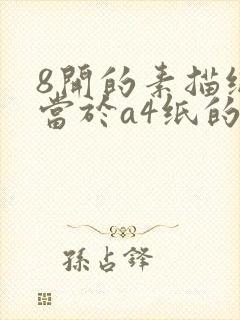 8開的素描
當於a4紙的
孫占鋒